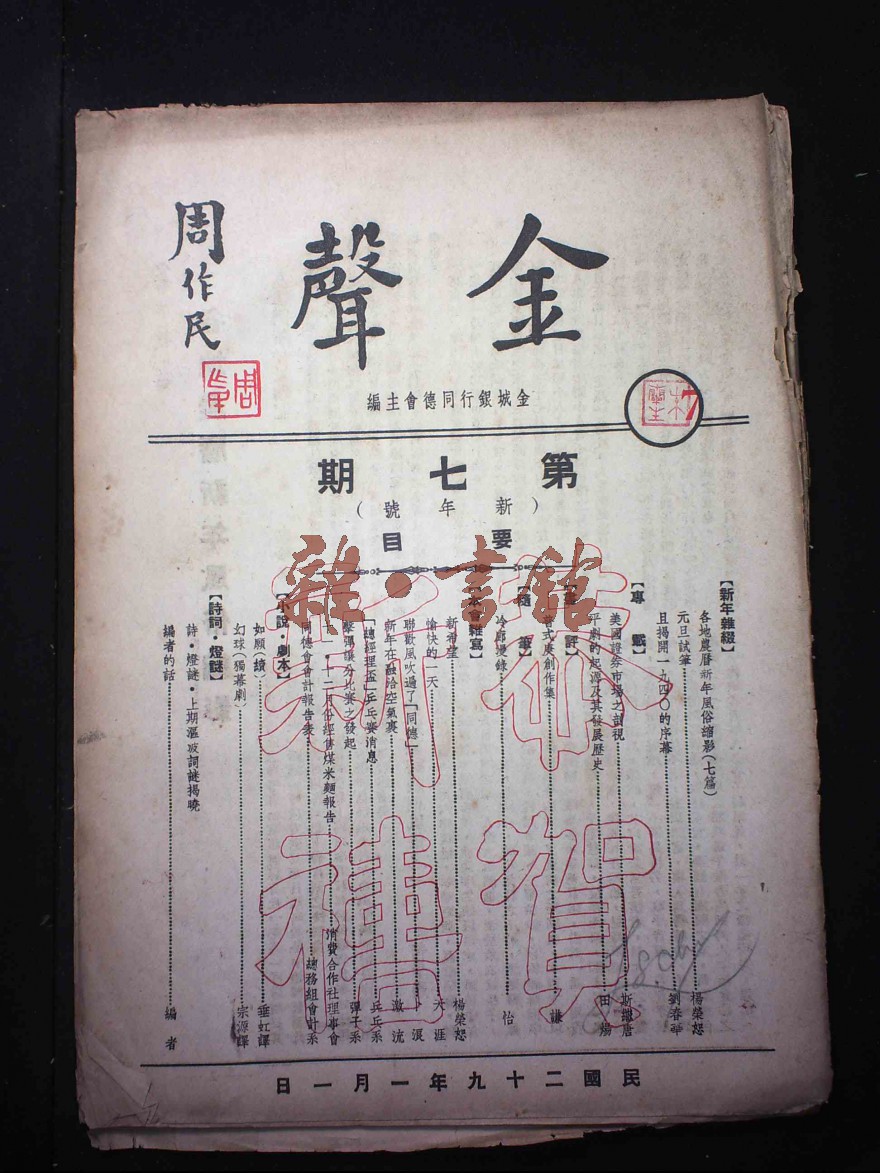 金聲
周作民
金城銀行同德會主編
7
第七期
(新年號)
要目
雜·書館
恭賀新禧
【新年雜綴】
各地農曆新年風俗縮影(七篇)
元旦試筆 楊榮恕
且揭開一九四〇的序幕 劉春華
【專載】
美國證券市場之剖視 斯鐵唐
平劇的起源及其發展歷史 田暘
【書評】
式庚創作集 謙
【隨筆】
冷廊漫錄 怡
雜寫】
新希望 楊榮恕
愉快的一天 大涯
聯歡風吹過了「同德」 浪
新年在融洽空氣裏 激流
「總經理盃」乒乓賽消息 乒乓系
擊彈讓分比賽之發起 彈子系
十一、十二月份經售煤米麵報告 消費合作社理事會
同德會會計報告表 總務組會計系
【小說·劇本】
如願(續) 垂虹譯
幻球(獨幕劇) 宗源譯
【詩詞·燈謎】
詩·燈謎·上期滬攷詞謎揭曉
編者的話 編者
民國二十九年一月一日